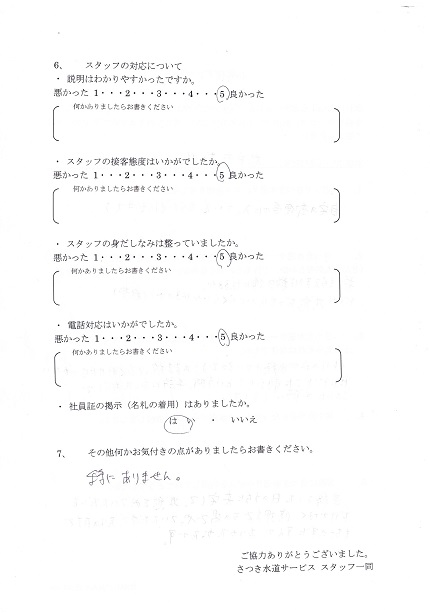 6、 スタッフの対応について
・ 説明はわかりやすかったですか。
悪かった 1・・・2・・・3・・・4・・・5 良かった
何かありましたらお書きください
・ スタッフの接客態度はいかがでしたか。
悪かった 1・・・2・・・3・・・4・・・5 良かった
何かありましたらお書きください
・ スタッフの身だしなみは整っていましたか。
悪かった 1・・・2・・・3・・・4・・・5 良かった
何かありましたらお書きください
・ 電話対応はいかがでしたか。
悪かった 1・・・2・・・3・・・4・・・5 良かった
何かありましたらお書きください
・ 社員証の掲示（名札の着用）はありましたか。
はい ・ いいえ
7、 その他何かお気付きの点がありましたらお書きください。
特にありません。
ご協力ありがとうございました。
さつき水道サービス スタッフ一同